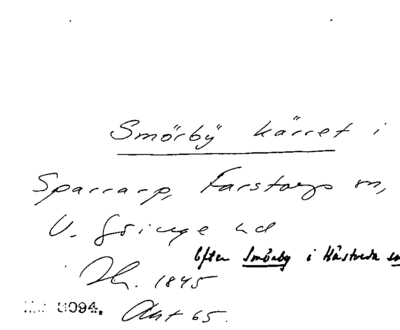 Smörby kärret i
Sparrarp, Farstorps sn,
V. Göinge hd
Efter Smörby i Hästveda sn
Jh. 1845
8094. Akt 65.